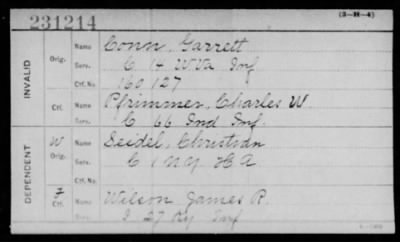 231214
(3-H-4)
INVALID
Orig.
Name Conn, Garrett
Serv. C 14 W Va Inf
Ctf. No. 160,127
Ctf.
Name Pfrimmer, Charles W.
Serv. C 66 Ind Inf.
DEPENDENT
W
Orig.
Name Seidel, Christian
Serv. C 1 N.Y. H A
Ctf. No.
Ctf.
Name Wilson James R.
Serv. I 27 Ky Inf